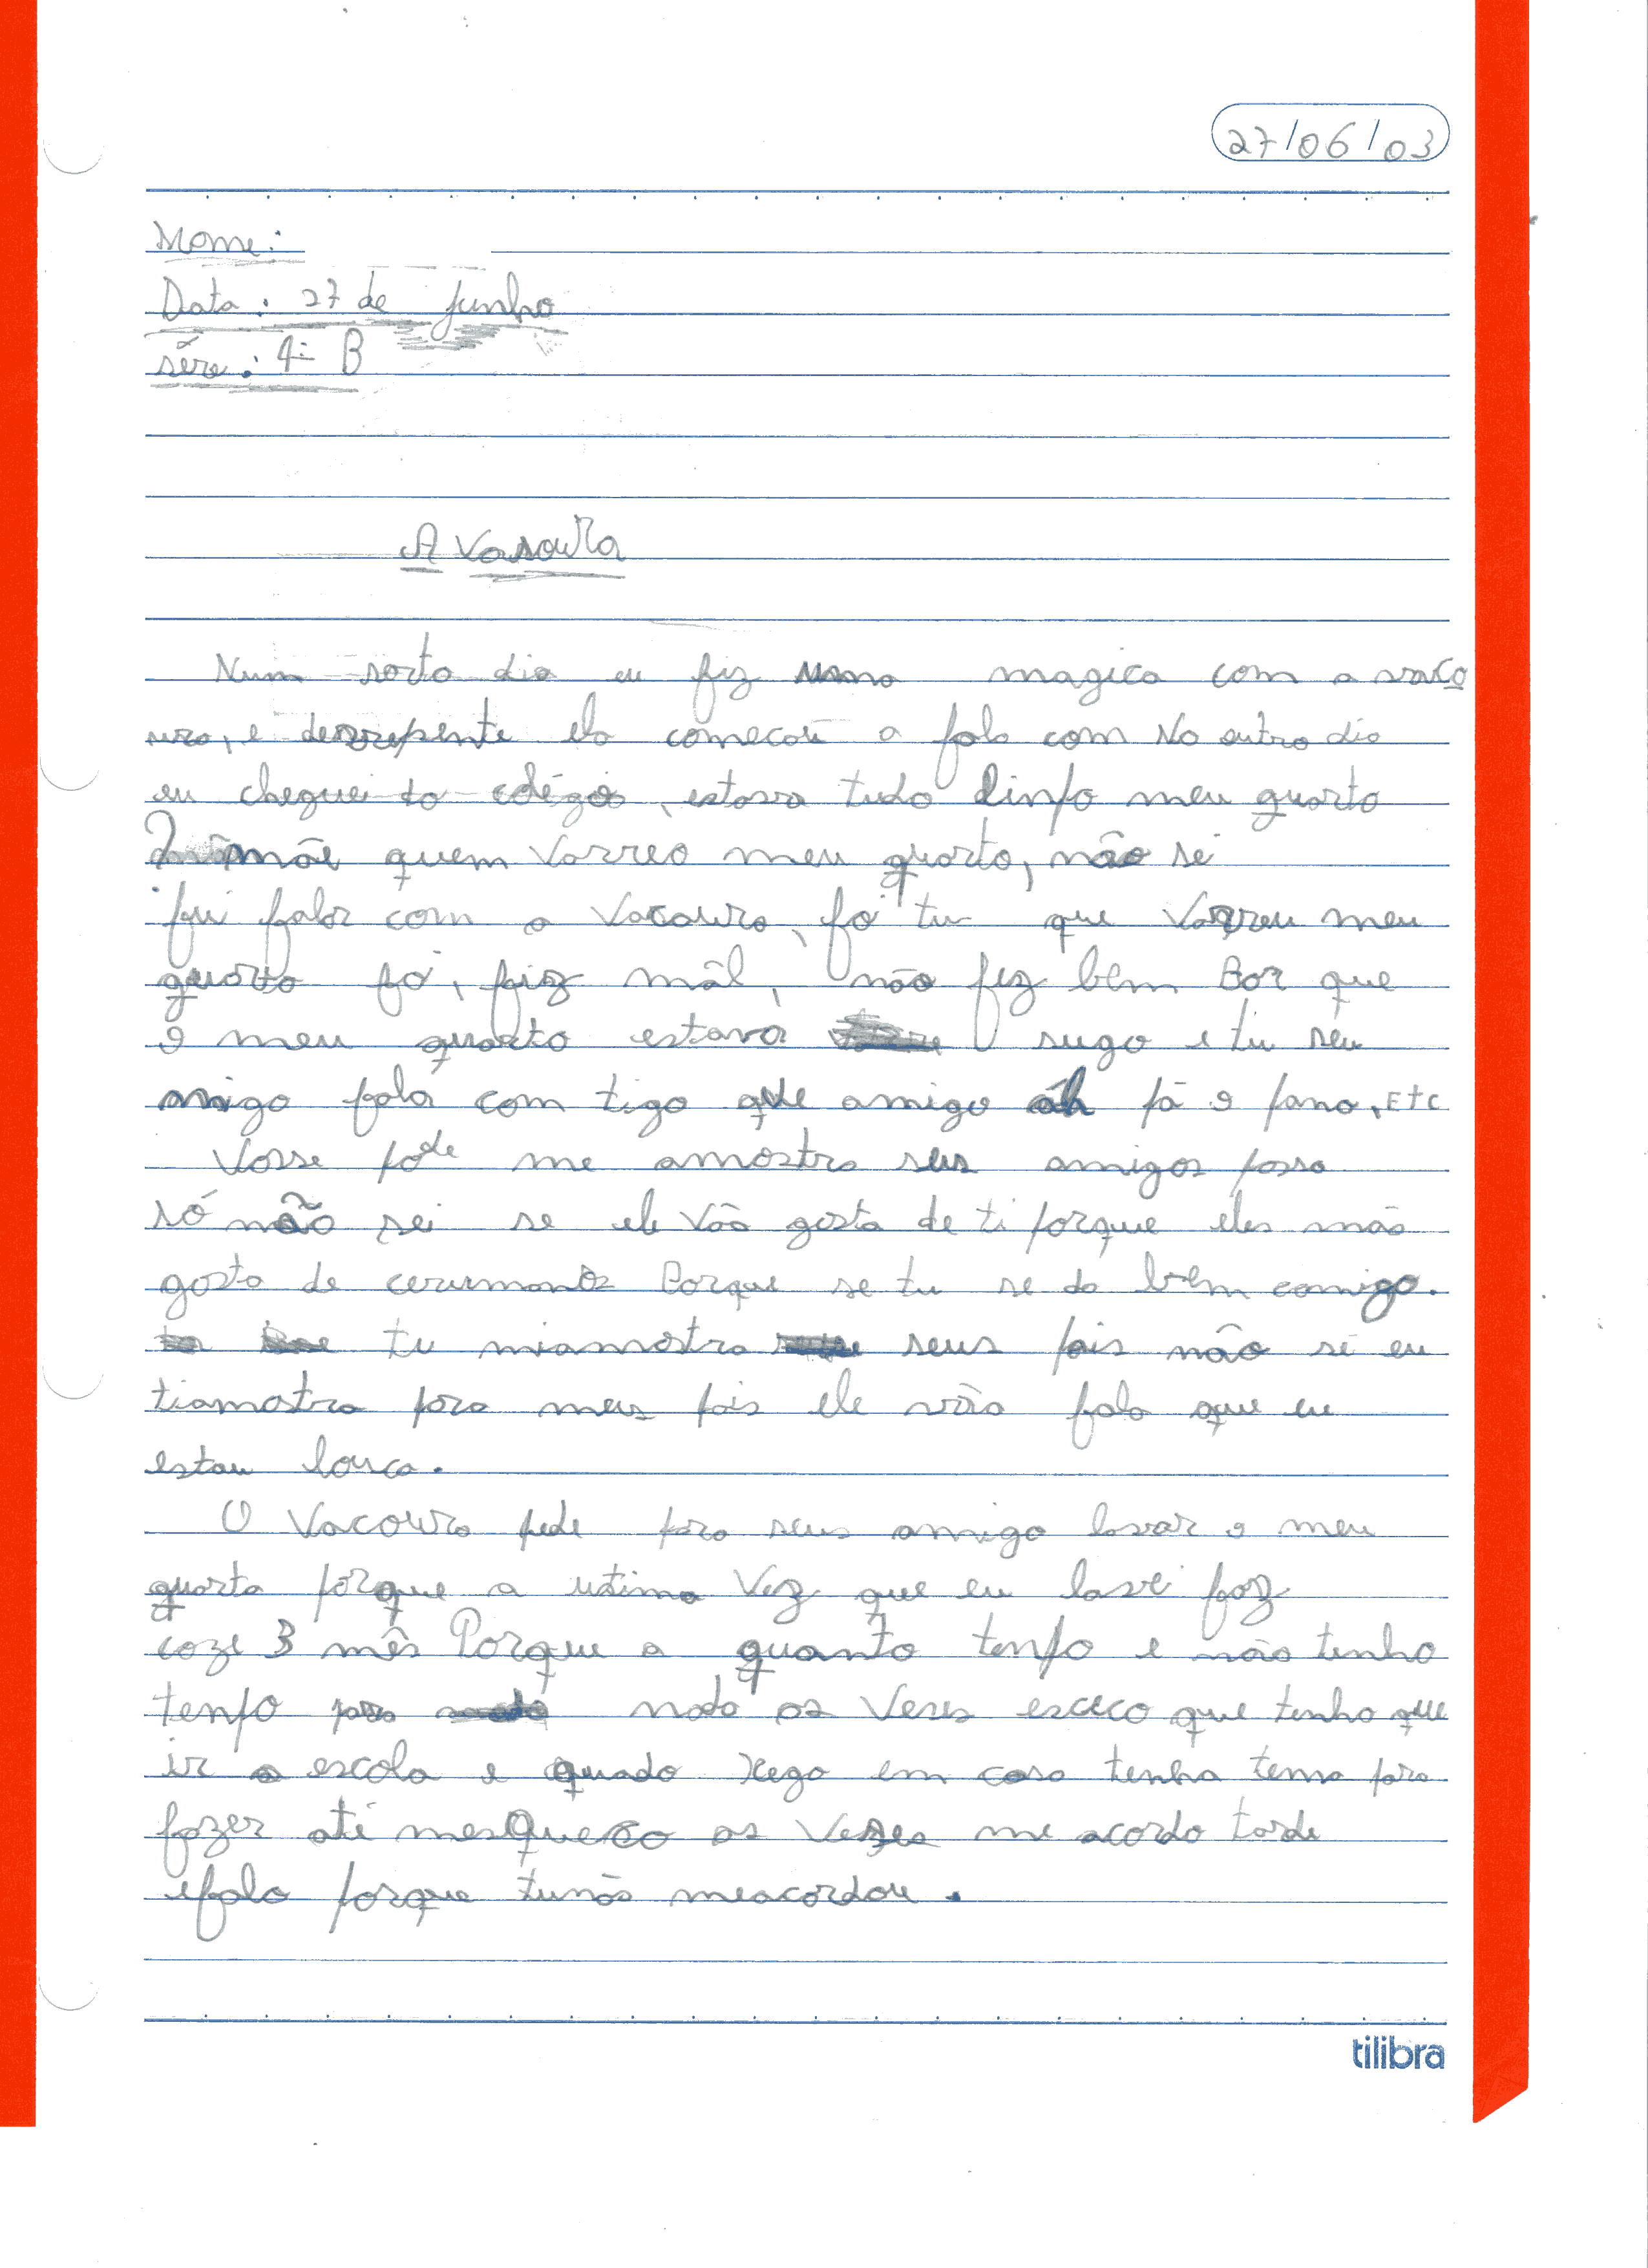 27/06/03
Nome:
Data: 27 de junho
sére: 4ª B
A Vasoura
Num serto dia eu fiz uma magica com a vaço
ura, e derrepente ela começou a fala com No outro dia
eu cheguei do colégio, estava tudo linpo meu quarto
mãe quem Varreo meu quarto, não sei
fui falar com a Vacoura, foi tu que Varreu meu
quarto foi, fiz mál, não fez bem Por que
o meu quarto estava sugo e tu seu
amigo fala com tigo que amigo ah pá o pano, Etc
Vosse pode me amostra seus amigos posso
só não sei se ele vão gosta de ti porque eles não
gosta de ceru Porque se tu se da bem comigo.
tu miamostra seus pais não si eu
tiamostra para meus pais ele vão fala que eu
estou louca.
O Vacoura pede para seus amigo lavar o meu
quarto porque a utima Vez que eu lavei faz
coze 3 mês Porque a quanto tenpo e não tenho
tenpo para nada as Veses esceco que tenho que
ir a escola e quado xego em casa tenho tema para
fazer até mesqueco as Vezes me acordo tarde
efalo porque tunão meacordou.
tilibra